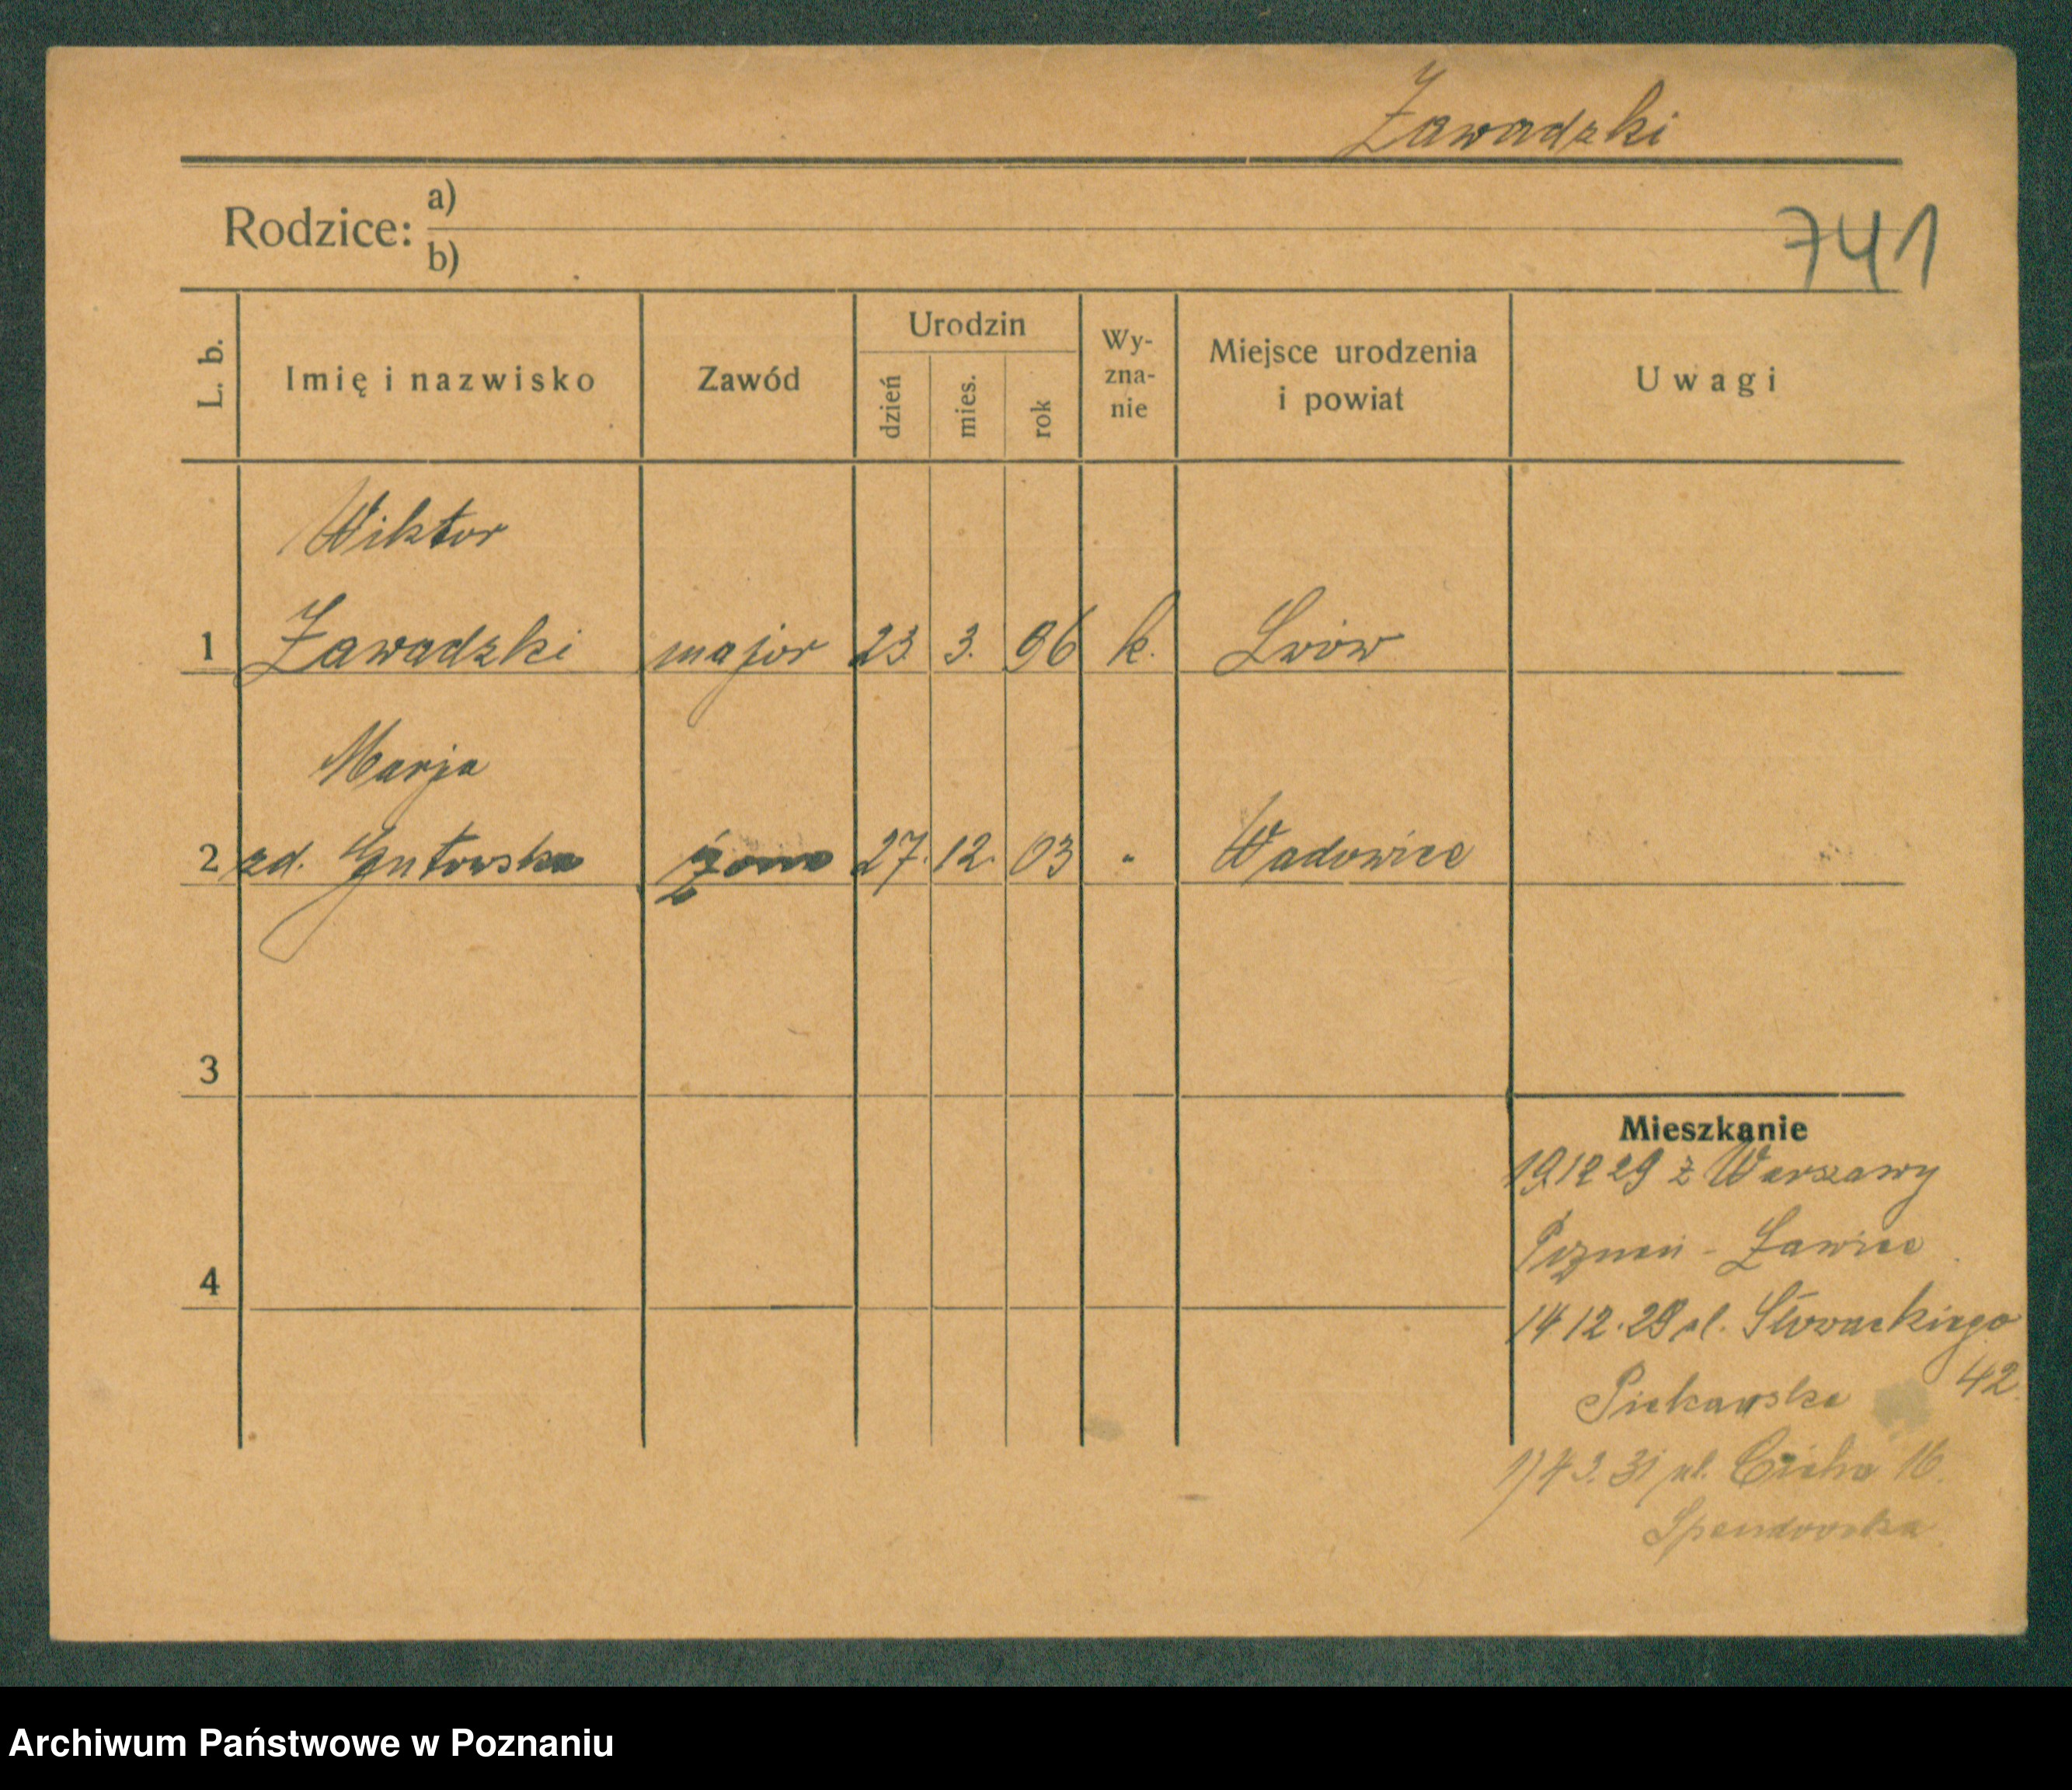 Zawadzki
Rodzice: a)
b)
741
L. b.
Imię i nazwisko
Zawód
Urodzin
dzień
mies.
rok
Wy-
zna-
nie
Miejsce urodzenia
i powiat
Uwagi
Wiktor
1 Zawadzki major 23 3. 96 k. Lwów
Marja
2 zd. Gutowska żona 27. 12. 03 " Wadowice
3
Mieszkanie
19 12 29 z Warszawy
Poznań - Ławica
4
14 12. 29 ul. Słowackiego
42.
Piekarska
3. 31 ul. Cicha 16.
Archiwum Państwowe w Poznaniu